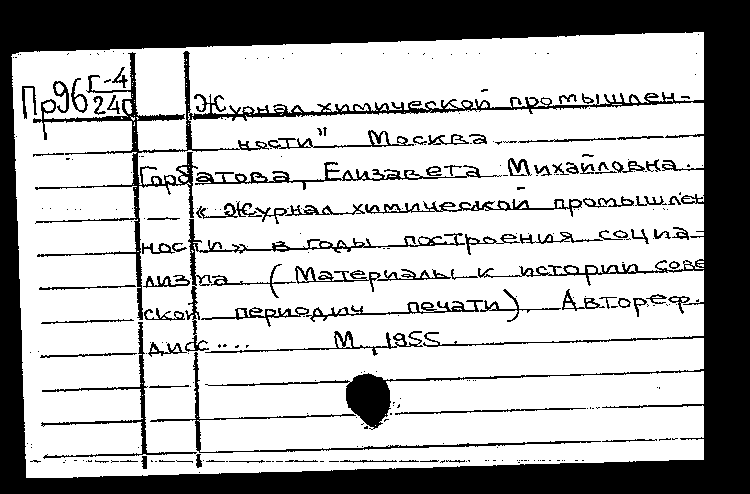 Пр96 Г-4/24г
Журнал химической промышлен-
ности" Москва
Горбатова, Елизавета Михайловна.
«Журнал химической промышлен
ности» в годы построения социа-
лизма. (Материалы к истории сове
ской периодич печати). Автореф.
дисс.... М., 1955.